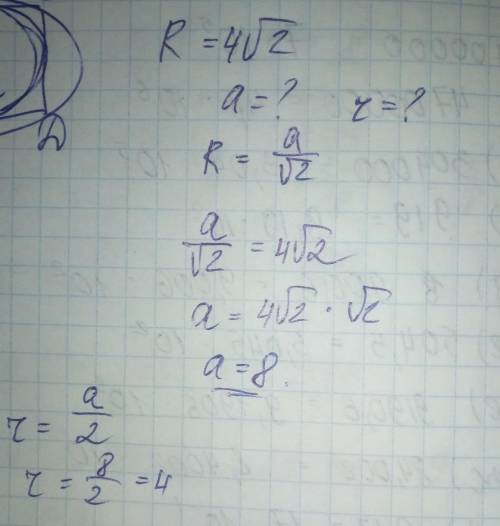 R = 4√2
a = ? r = ?
R = a/√2
a/√2 = 4√2
a = 4√2 · √2
a = 8.
r = a/2
r = 8/2 = 4
D